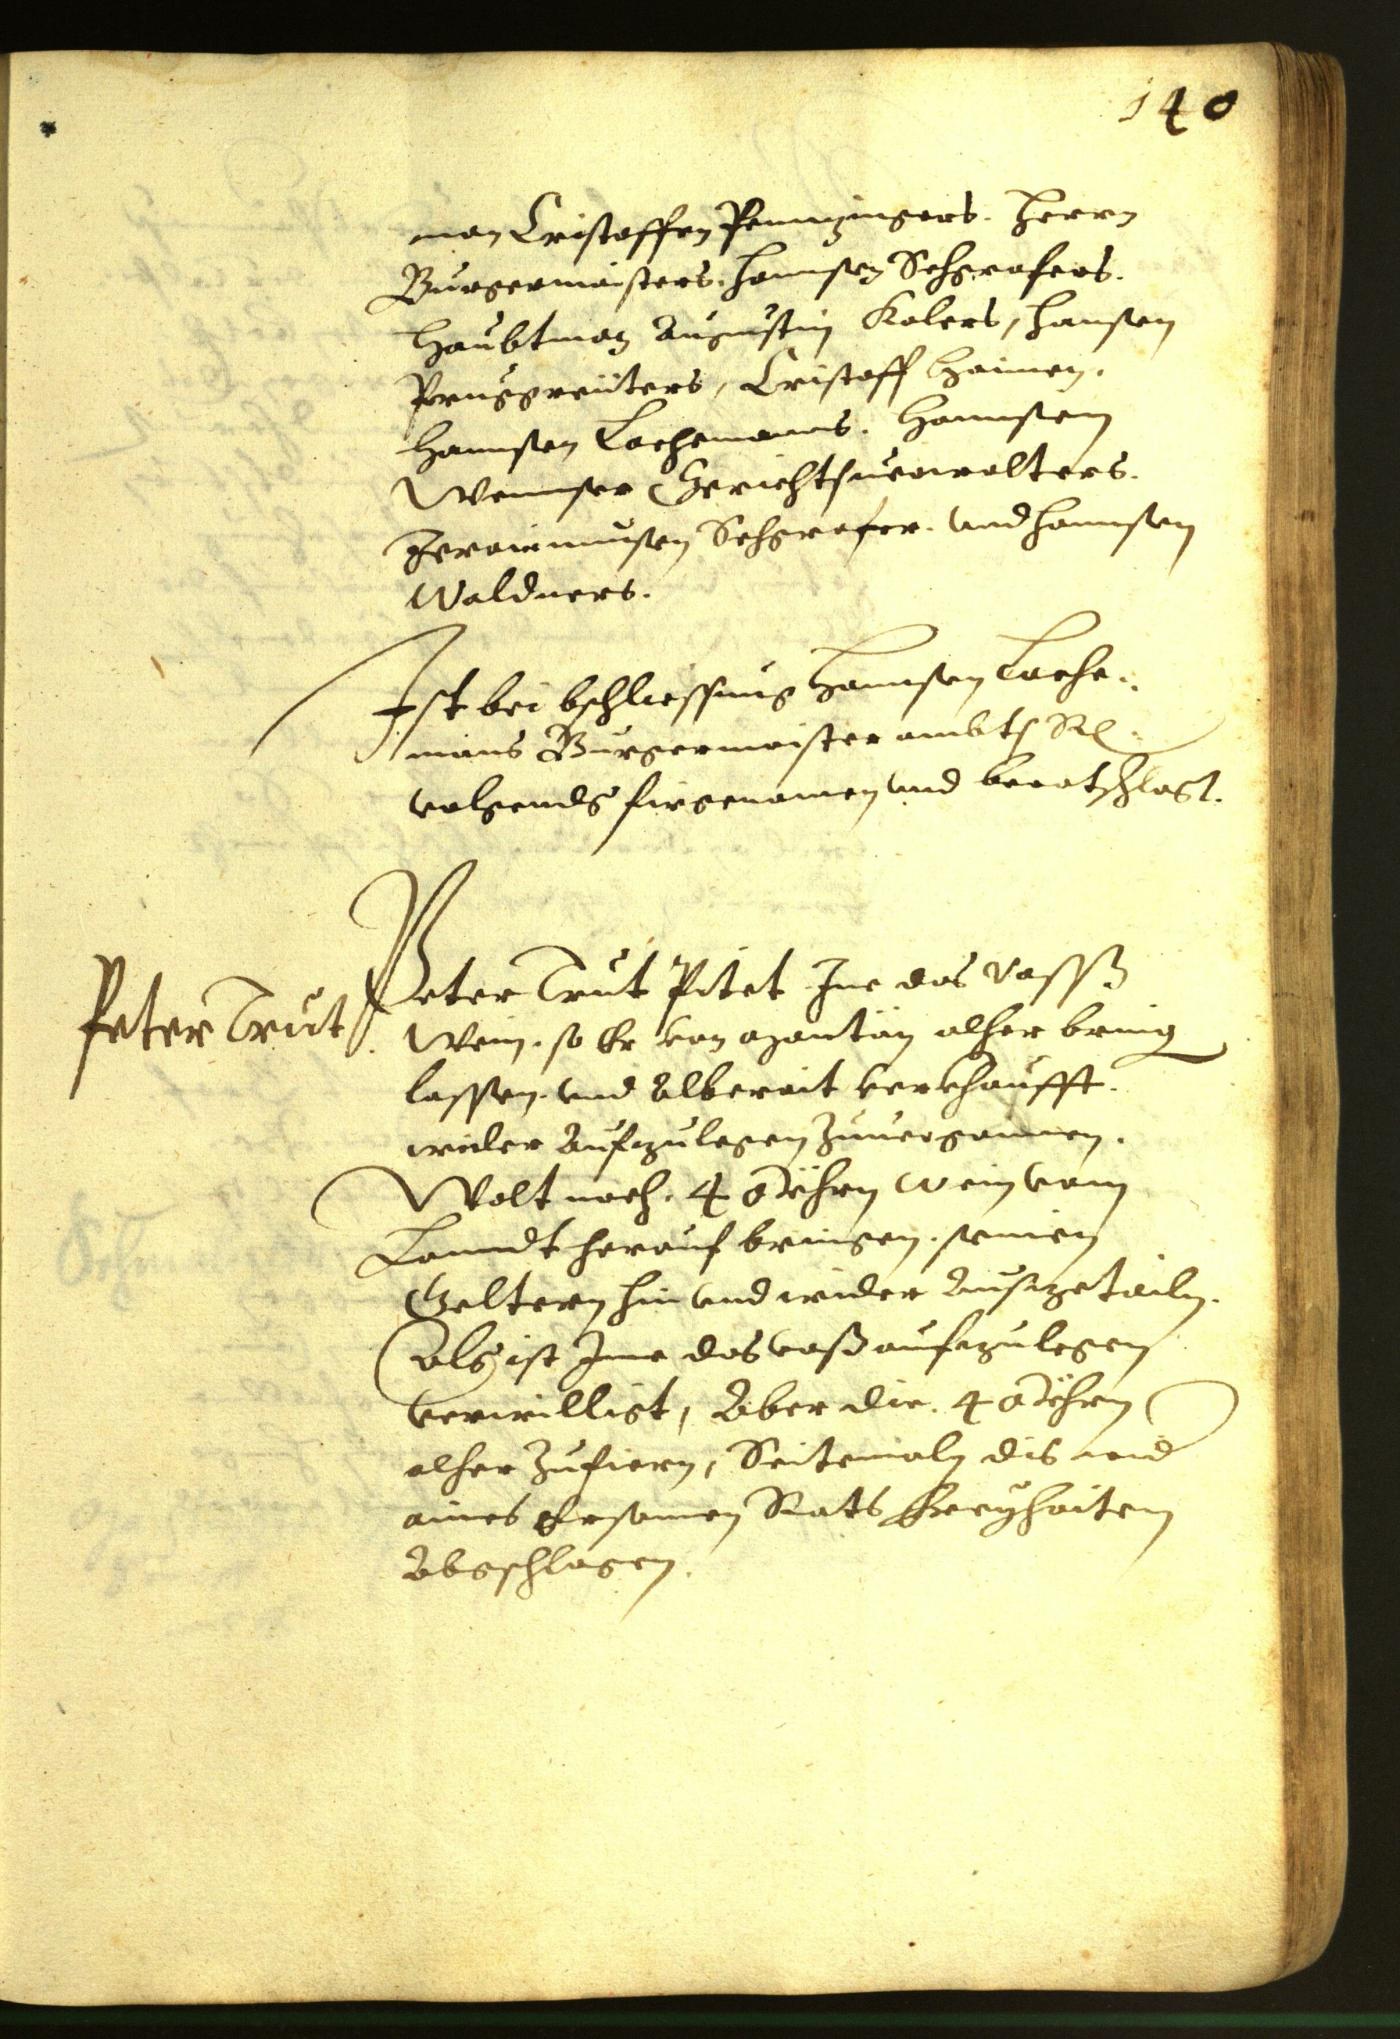 140
man Cristoffen Penntzingers. Herrn
Burgermaisters. Hannsen Schgrafers.
Haubtman Augustin Kolers, Hansen
Prugkreüters, Cristoff Haimen.
Hannsen Lachemanns. Hannsen
Wennser Gerichtsuerwalters.
Jeronimusen Schgrafer. vnd Hannsen
Waldners.
Ist bei bschliessung Hannsen Lache„
mans Burgermaister ambts Rℓ.
volgends firgenomen vnd beratschlagt.
Peter Trut
Peter Trut Pitet Ime das vassß
Wein. so Er von alher bring
lassen. vnd Alberait verkhaufft.
wider Aufzulegen Zuuergonnen.
Wolt noch. 4 Ÿhrn Wein vom
Lanndt herauf bringen. seinen
Geltern hin vnd wider Ausgetailn.
Als ist Ime das vaß aufzulegen
verwilligt, Aber die. 4 Ÿhrn
alher Zufiern, Seitemaln dis wid
aines Ersamen Rats freÿhaiten
Abgschlagen.